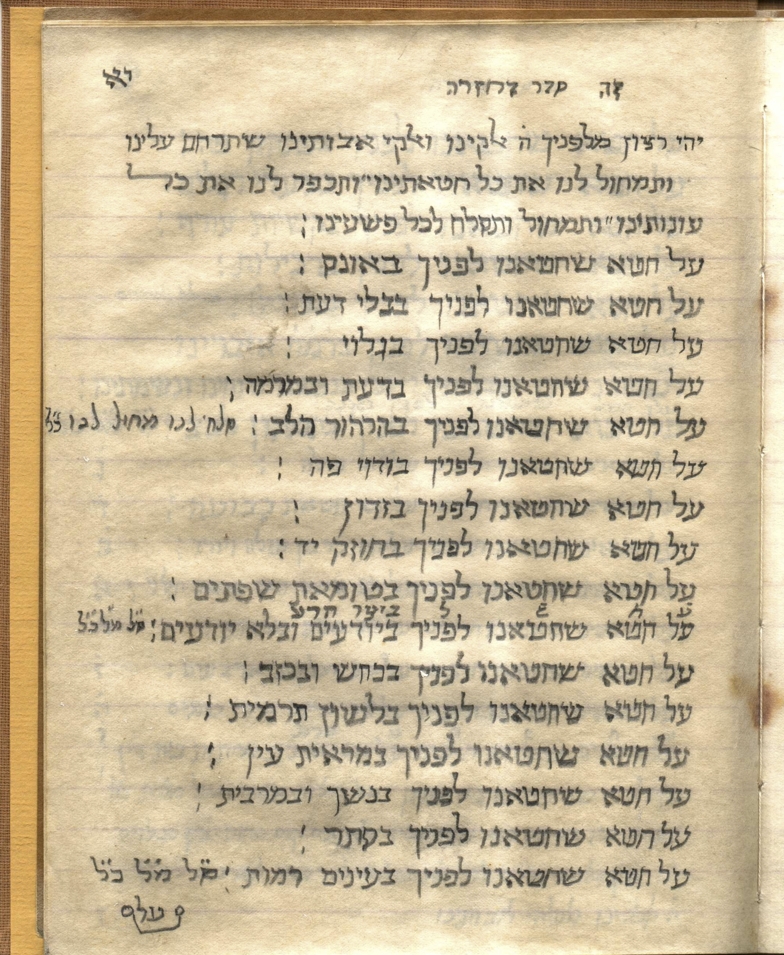 זה סדר דחזרה יא
יהי רצון מלפניך ה׳ אלקינו ואלקי אבותינו שתרחם עלינו
ותמחול לנו את כל חטאתינו״ותכפר לנו את כל
עונותינו״ותמחול ותסלח לכל פשעינו :
על חטא שחטאנו לפניך באונס :
על חטא שחטאנו לפניך בבלי דעת :
על חטא שחטאנו לפניך בגלוי :
על חטא שחטאנו לפניך בדעת ובמרמה :
על חטא שחטאנו לפניך בהרהור הלב : סלח לנו מחול לנו
על חטא שחטאנו לפניך בודוי פה :
על חטא שחטאנו לפניך בזדון :
על חטא שחטאנו לפניך בחוזק יד :
על חטא שחטאנו לפניך בטומאת שפתים :
ע ח ש ל ביצר הרע
על חטא שחטאנו לפניך ביודעים ובלא יודעים : ס״ל מ״ל כ״ל
על חטא שחטאנו לפניך בכחש ובכזב :
על חטא שחטאנו לפניך בלשון תרמית :
על חטא שחטאנו לפניך במראית עין :
על חטא שחטאנו לפניך בנשך ובמרבית :
על חטא שחטאנו לפניך בסתר :
על חטא שחטאנו לפניך בעינים רמות : ס״ל מ״ל כ״ל
על